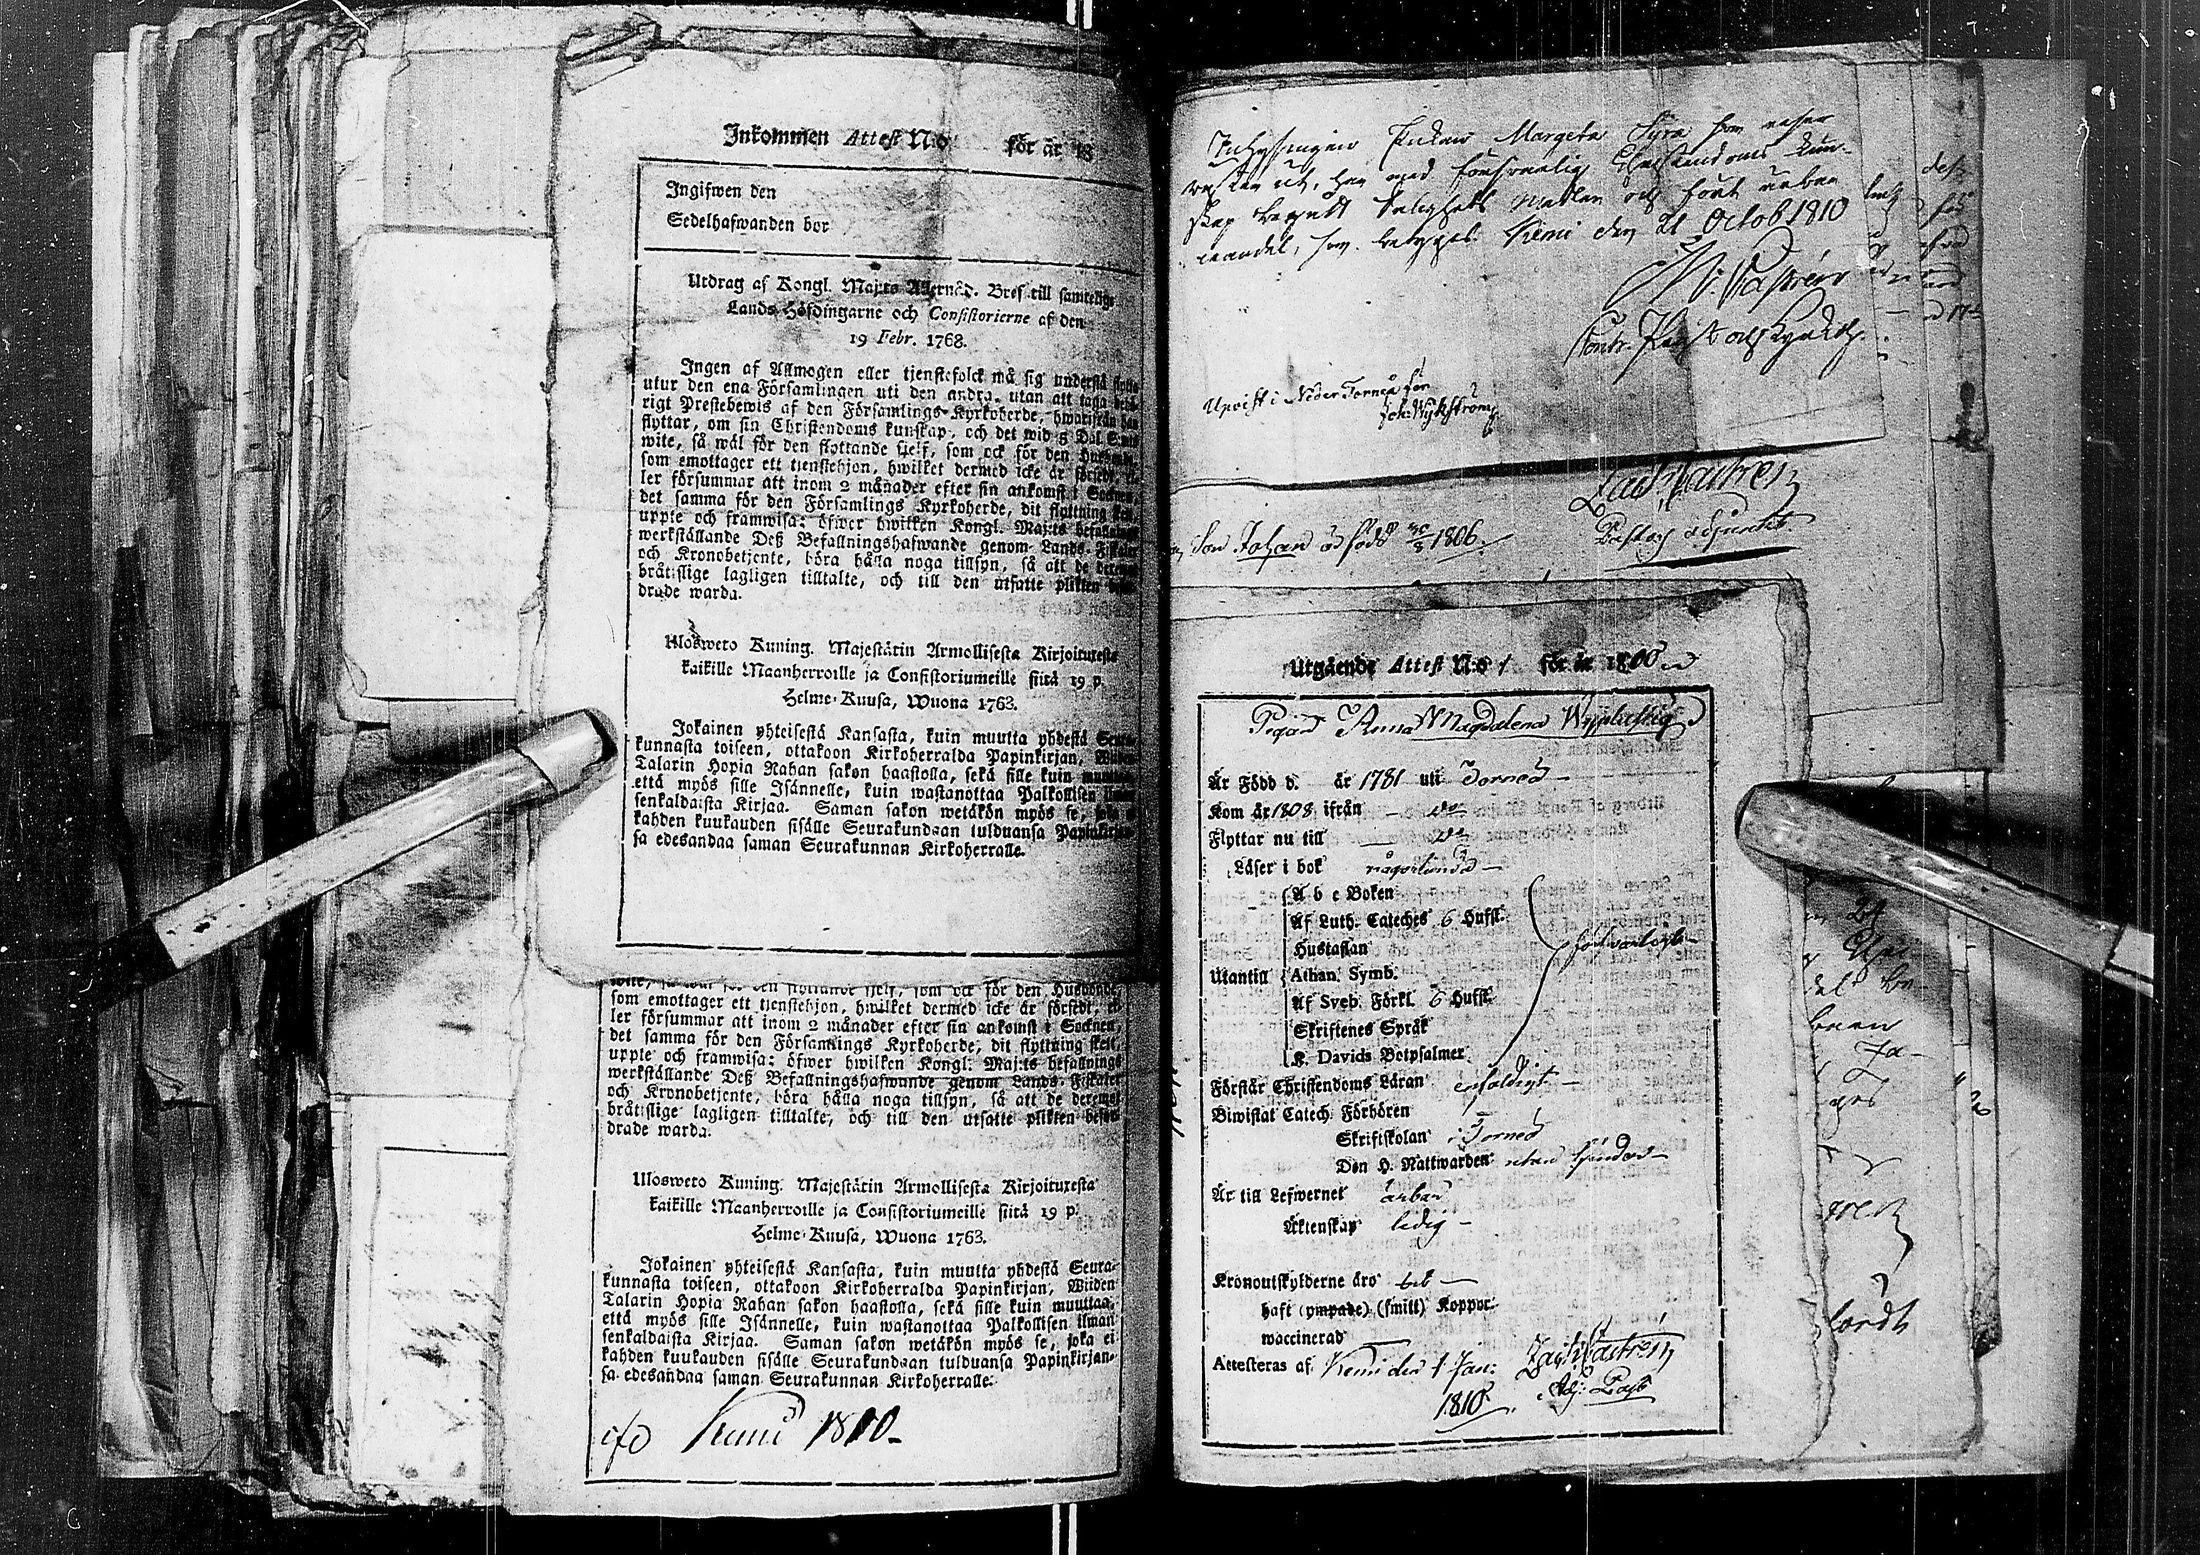 Inkommen Attest N:o för år 18
Ingifwen den
Sedelhafwanden bor
Utdrag af Kongl. Maj:ts Allernåd. Bref till samtelige
Lands-Höfdingarne och Consistorierne af den
19 Febr. 1768.
Ingen af Allmogen eller tjenstefolck må sig understå flytta
utur den ena Församlingen uti den andra, utan att taga behö-
rigt Prestebewis af den Församlings-Kyrkoherde, hwarifrån han
flyttar, om sin Christendoms kunskap, och det wid 5 Dal. S:mts
wite, så wäl för den flyttande sjelf, som ock för den Husbonde,
som emottager ett tjenstehjon, hwilket dermed icke är försedt, el-
ler försummar att inom 2 månader efter sin ankomst i Socknen,
det samma för den Församlings Kyrkoherde, dit flyttning sker,
uppte och framwisa; öfwer hwilken Kongl. Maj:ts befallnings
werkställande Deß Befallningshafwande genom Lands-Fiskaler
och Kronobetjente, böra hålla noga tillsyn, så att de deremot
bråtslige lagligen tilltalte, och till den utsatte plikten beför-
drade warda.
Ulosweto Kuning. Majestätin Armollisesta Kirjoituxesta
kaikille Maanherroille ja Consistoriumeille siitä 19 p.
Helme-Kuusa, Wuona 1763.
Jokainen yhteisestä Kansasta, kuin muutta yhdestä Seura-
kunnasta toiseen, ottakoon Kirkoherralda Papinkirjan, Wiiden
Talarin Hopia Rahan sakon haastolla, sekä sille kuin muuttaa,
että myös sille Isännelle, kuin wastanottaa Palkollisen ilman
senkaldaista Kirjaa. Saman sakon wetäkön myös se, joka ei
kahden kuukauden sisälle Seurakundaan tulduansa Papinkirjan-
sa edesandaa saman Seurakunnan Kirkoherralle.
som emottager ett tjenstehjon, hwilket dermed icke är försedt, el-
ler försummar att inom 2 månader efter sin ankomst i Socknen,
det samma för den Församlings Kyrkoherde, dit flyttning sker,
uppte och framwisa; öfwer hwilken Kongl. Maj:ts befallnings
werkställande Deß Befallningshafwande genom Lands-Fiskaler
och Kronobetjente, böra hålla noga tillsyn, så att de deremot
bråtslige lagligen tilltalte, och till den utsatte plikten beför-
drade warda.
Ulosweto Kuning. Majestätin Armollisesta Kirjoituxesta
kaikille Maanherroille ja Consistoriumeille siitä 19 p.
Helme-Kuusa, Wuona 1763.
Jokainen yhteisestä Kansasta, kuin muutta yhdestä Seura-
kunnasta toiseen, ottakoon Kirkoherralda Papinkirjan, Wiiden
Talarin Hopia Rahan sakon haastolla, sekä sille kuin muuttaa,
että myös sille Isännelle, kuin wastanottaa Palkollisen ilman
senkaldaista Kirjaa. Saman sakon wetäkön myös se, joka ei
kahden kuukauden sisälle Seurakundaan tulduansa Papinkirjan-
sa edesandaa saman Seurakunnan Kirkoherralle.
Kemi 1810
Inhysingen Enkan Margeta Tyra som reser
med försvarlig Christendoms kun-
skap begådt Salighets Medlen och fört ärbar
wandel, som betygas. Kemi den 21 Octob 1810
Castrén
Upvist i Neder Torneå för
Joh: Wykström
Zach Castrén
Son Johan är född 30/3 1806
Past adjunct
Utgående Attest N:o 1 för år 1810
Pigan Anna Magdalena Wyplustig
Är Född d. år 1781 uti Torneå
Kom år 1808 ifrån d:o
Flyttar nu till d:o
Läser i bok någorlunda
A b c Boken
Af Luth. Cateches 6 Hufst.
Hustaflan försvarligt
Utantill Athan. Symb.
Af Sveb. Förkl. 6 Hufst.
Skriftenes Språk
K. Davids Botpsalmer
Förstår Christendoms Läran enfaldigt
Biwistat Catech. Förhören
Skriftskolan i Torneå
Den H. Nattwarden utan hinder
Är till Lefwernet ärbar
Äktenskap ledig
Kronoutskylderne äro
haft (ympade) (smitt) Koppor
waccinerad
Attesteras af Kemi den 1 Jan: Zach Castrén
1810. Adj: Past